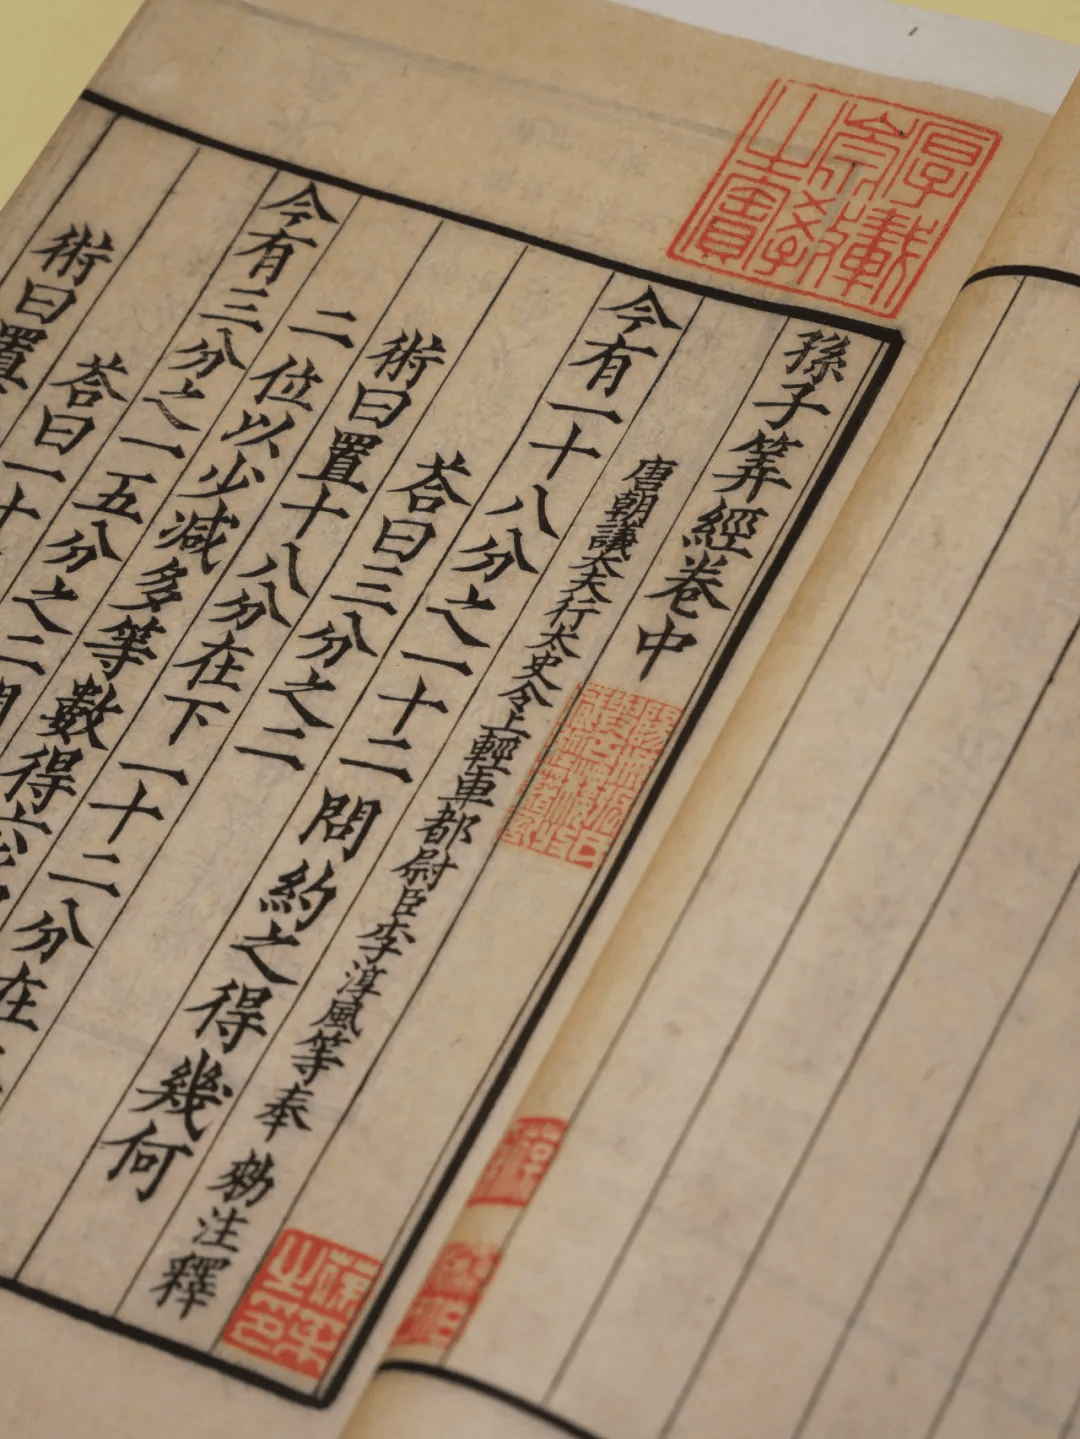 孫子筭經卷中
唐朝議大夫行太史令上輕車都尉臣李淳風等奉 勑注釋
今有一十八分之一十二問約之得幾何
荅曰三分之二
術曰置十八分在下一十二分在
二位以少減多等數得六
今有三分之一五分之二問
荅曰一十
術曰置